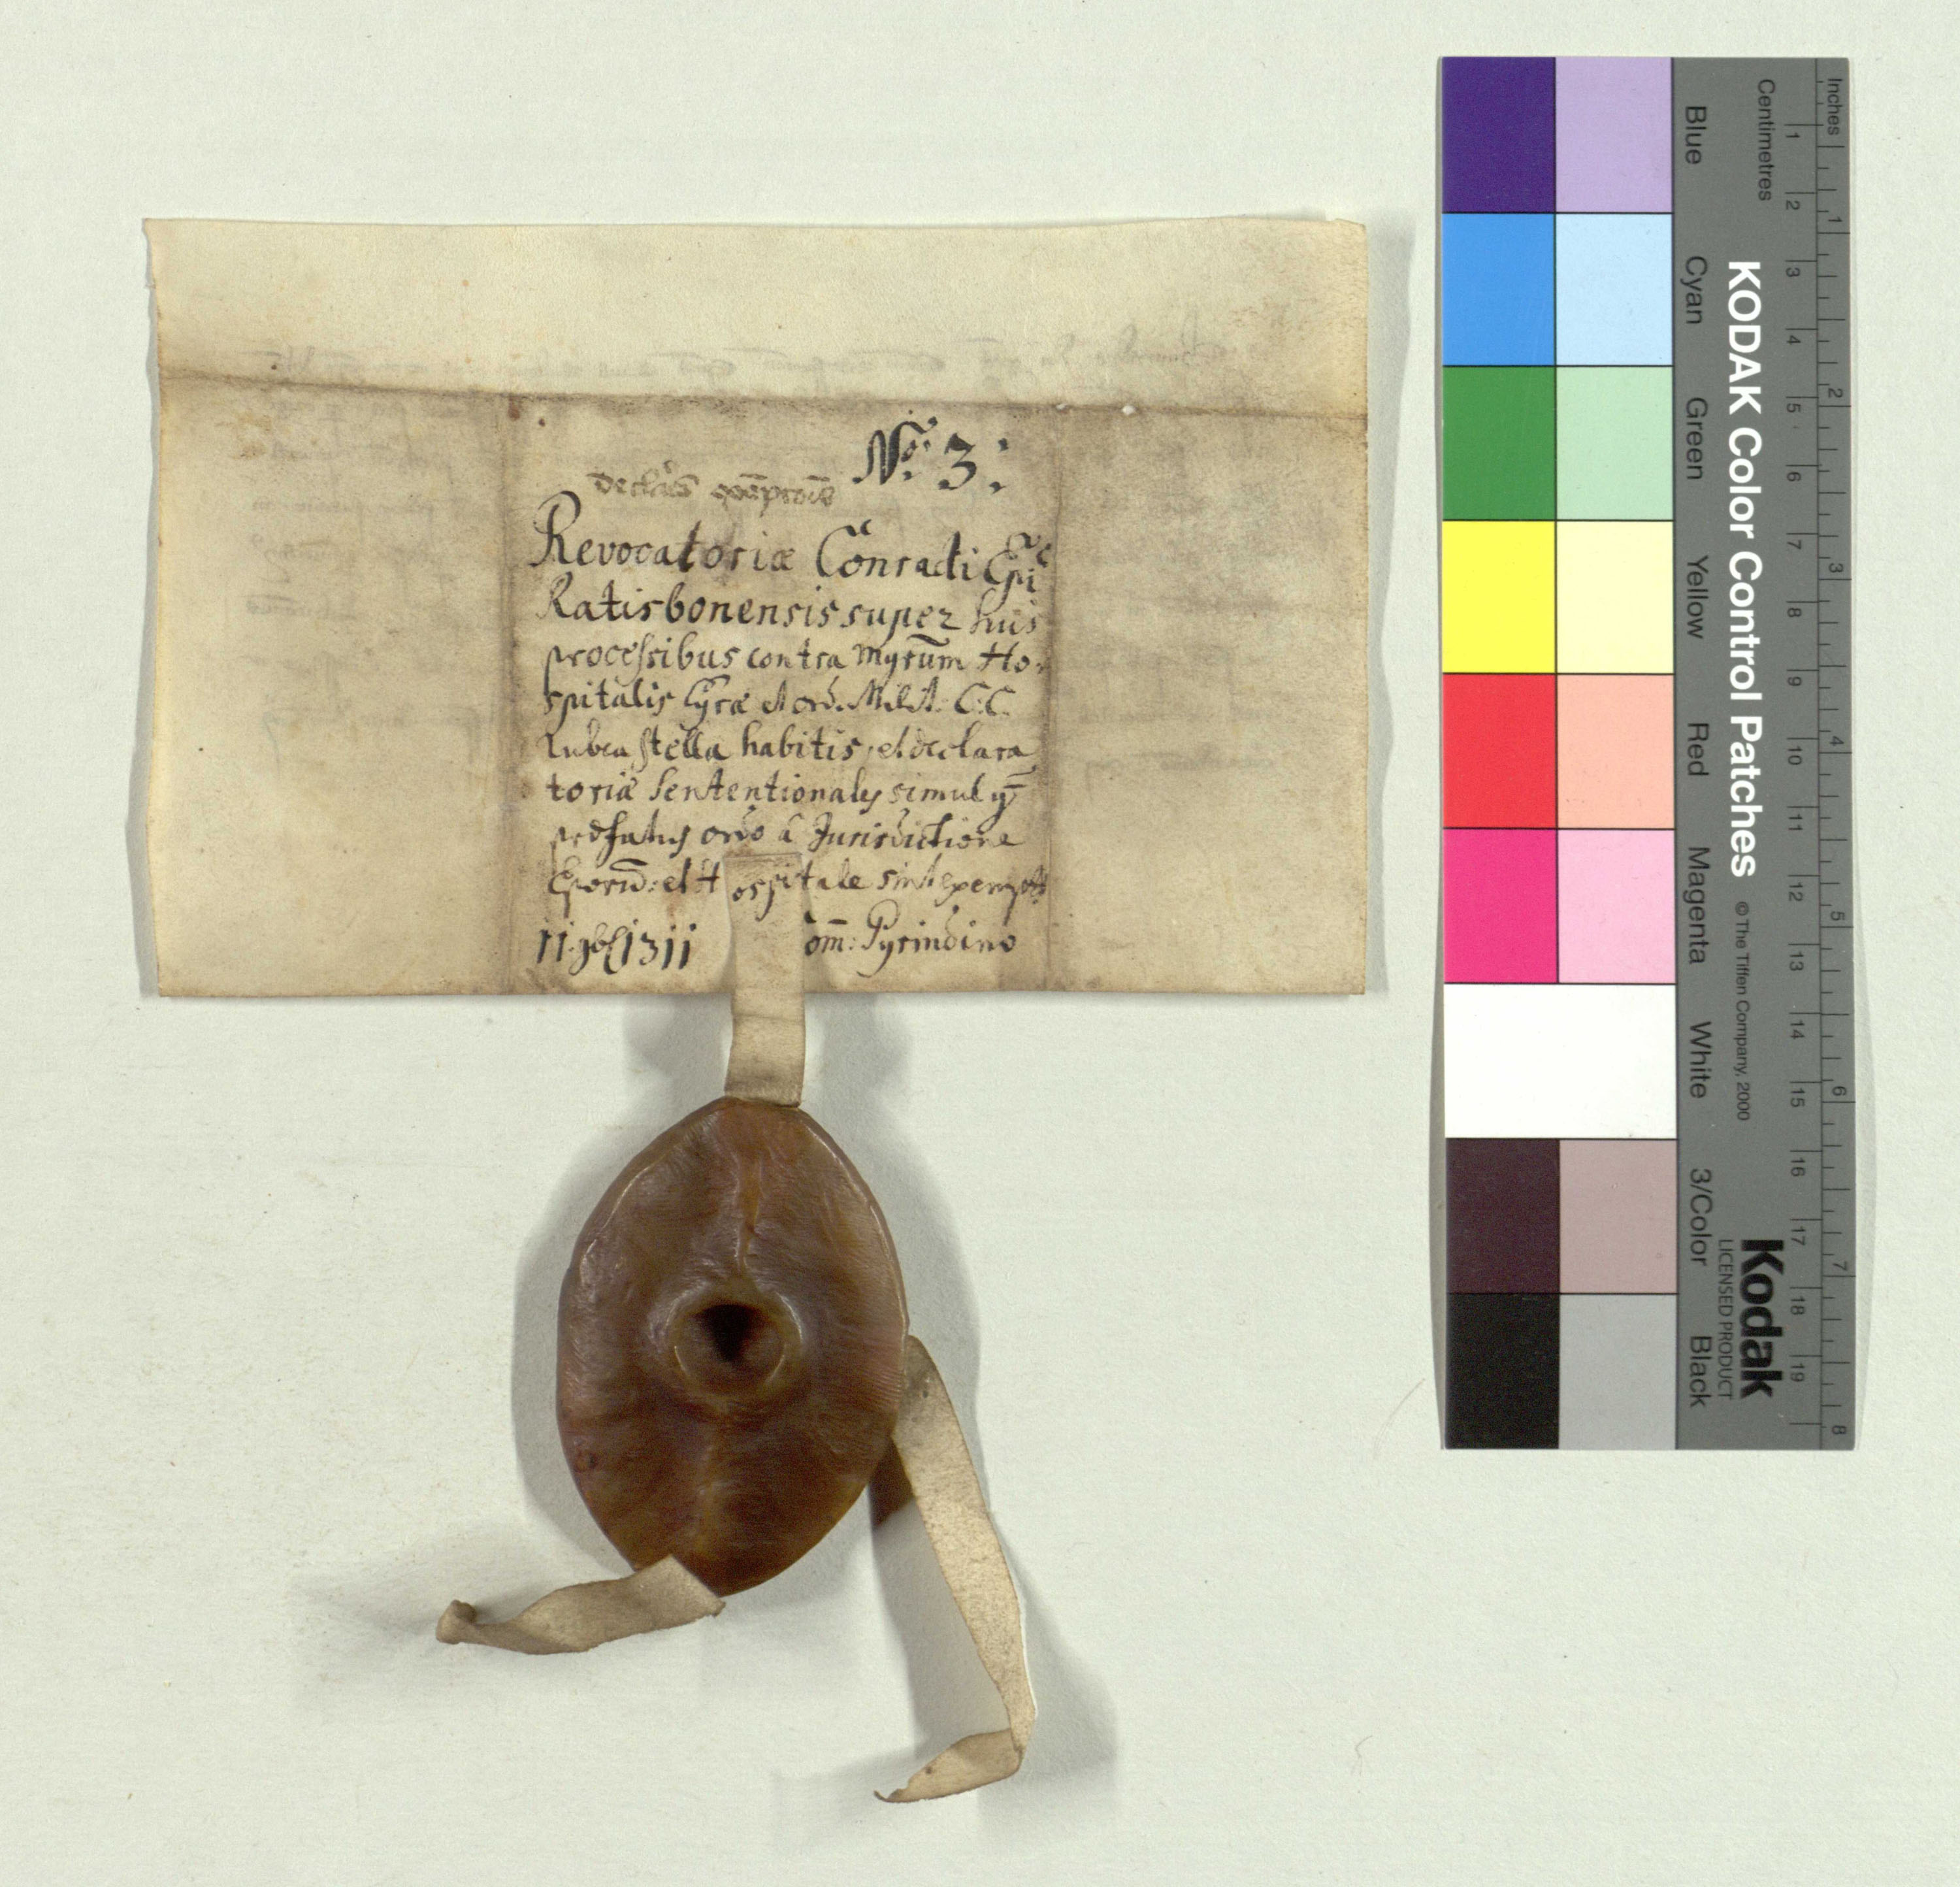 Nro. 3:
Revocatoriæ Conradi Epi
Ratisbonensis super huis
processibus contra Mgrum Ho-
spitalis Egræ et ord. Milit. C: C.
rubea stella habitis, et declara
toriæ sententionales simul q
præfatus ordo à Jurisdictione
Eporum: et Hospitale sint exempt
11. 9bl 1311 om: Pyrindino
KODAK Color Control Patches
© The Tiffen Company, 2000
Kodak
LICENSED PRODUCT
Inches
1 2 3 4 5 6 7 8
Centimetres
1 2 3 4 5 6 7 8 9 10 11 12 13 14 15 16 17 18 19
Blue
Cyan
Green
Yellow
Red
Magenta
White
3/Color
Black